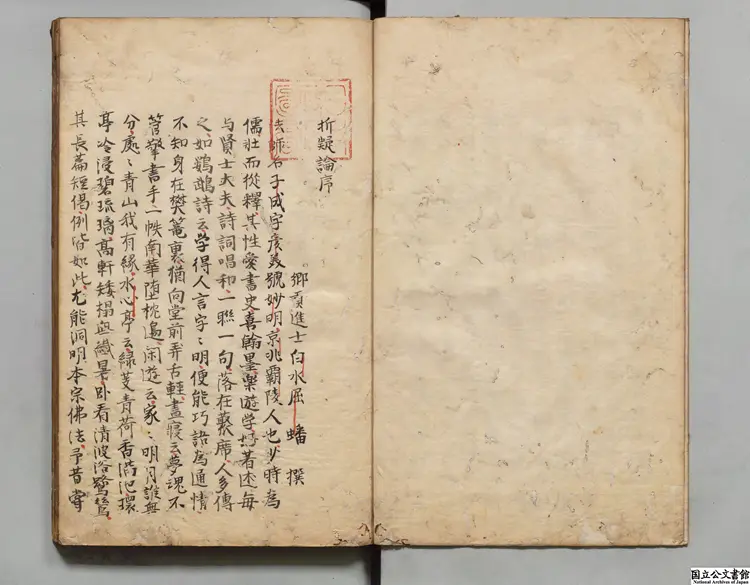 折疑論序
鄉貢進士白水屈蟠撰
法師名子成字彦美號妙明京兆覇陵人也少時為
儒壮而從釋其性愛書史喜翰墨樂遊学好著述每
与賢士大夫詩詞唱和一聯一句落在藂席人多傳
之如鸚鵡詩云学得人言字〻明便能巧語為通情
不知身在樊篭裏猶向堂前弄古輕晝寢云夢魂不
管擎書手一帙南華堕枕邉閑遊云家〻明月誰無
分處〻青山我有緣水心亭云緑芰青荷香滿池環
亭冷浸碧琉璃髙軒矮榻無纖暑卧看清波浴鷺鷥
其長篇短偈例皆如此尤能洞明本宗佛法予昔嘗
国立公文書館
National Archives of Japan